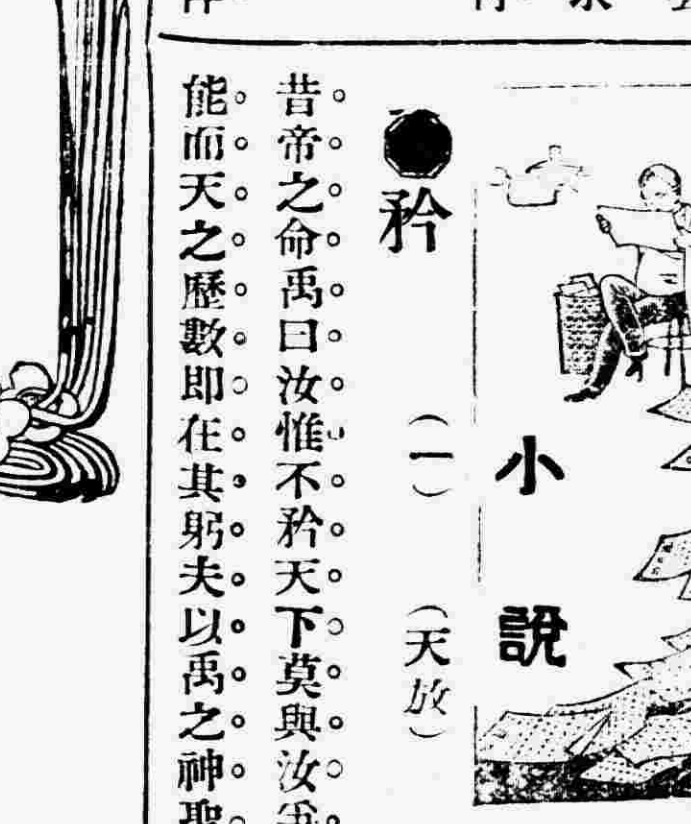 小說
矜
（一）
（天放）
昔帝之命禹曰汝惟不矜天下莫與汝爭
能而天之歷數即在其躬夫以禹之神聖